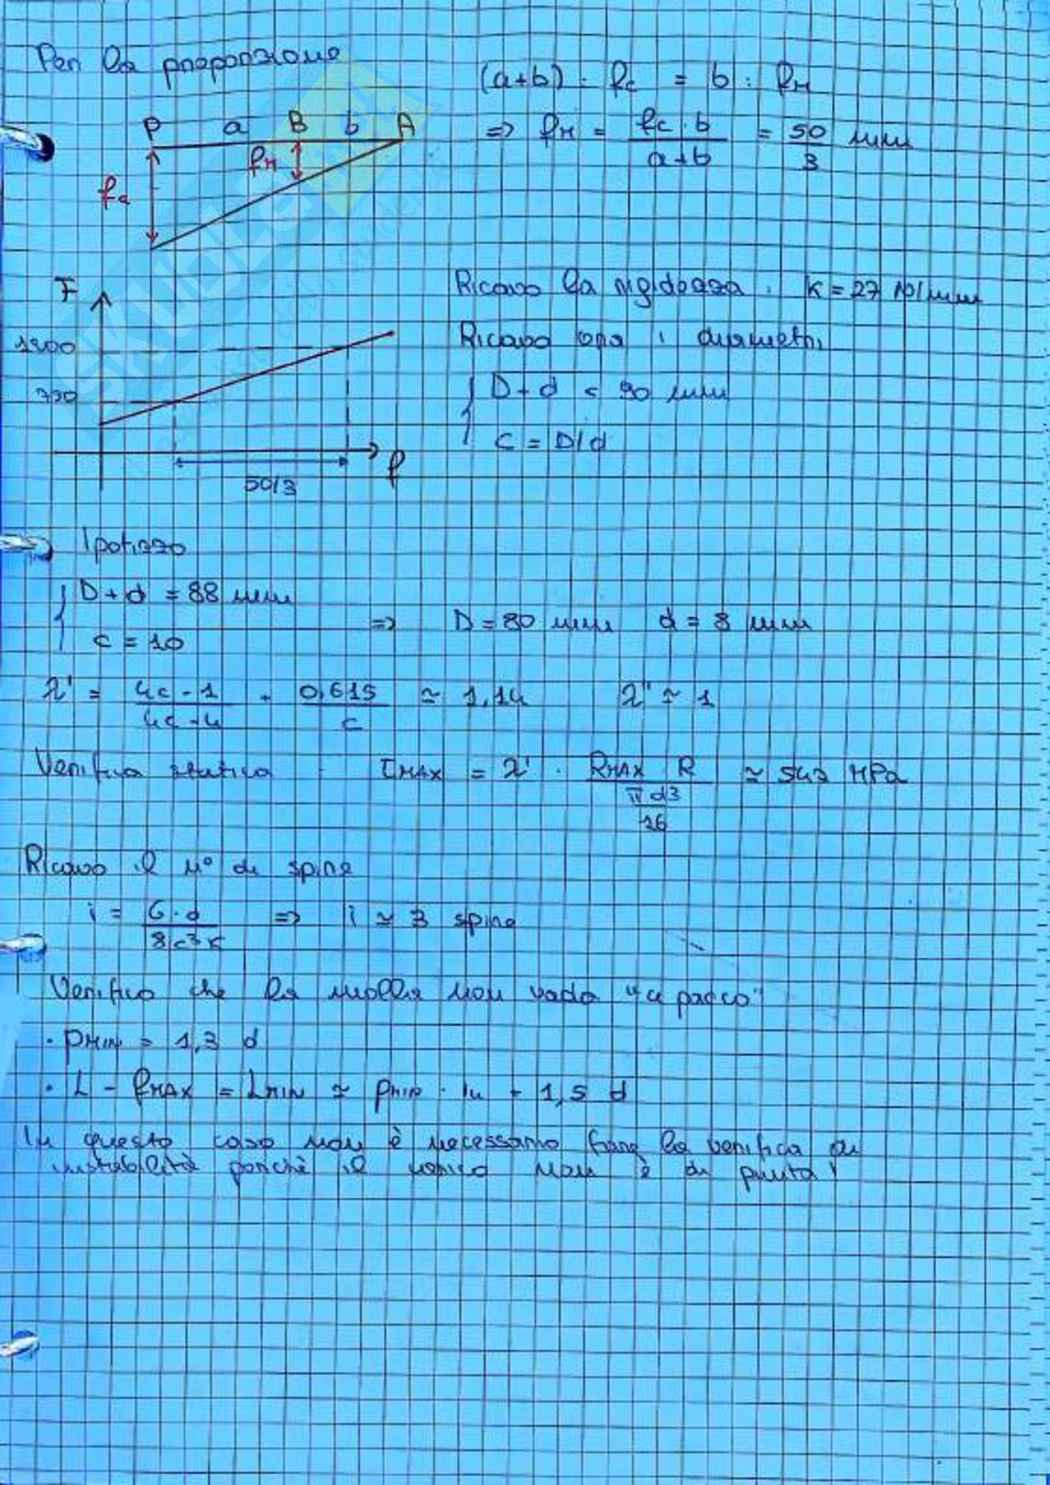 Per la proporzione
(a+b) : fc = b : fM
P a B b A
fM
fc
=> fM = fc · b / a+b = 50/3 mm
F
1200
750
50/3
f
Ricavo la rigidezza : k = 27 N/mm
Ricavo ora i diametri
{ D + d < 90 mm
C = D/d
Ipotizzo
{ D + d = 88 mm
C = 10
=> D = 80 mm d = 8 mm
λ' = 4c - 1 / 4c - 4 + 0,615 / c ≃ 1,14 λ'' ≃ 1
Verifica statica : τMAX = λ' · RMAX R / πd3/16 ≃ 547 MPa
Ricavo il n° di spire
i = G · d / 8c3k => i ≃ 3 spire
Verifico che la molla non vada "a pacco"
· PMIN = 1,3 d
· L - fMAX = LMIN ≃ PMIN · iu + 1,5 d
In questo caso non è necessario fare la verifica di
instabilità perchè il carico non è di punta!